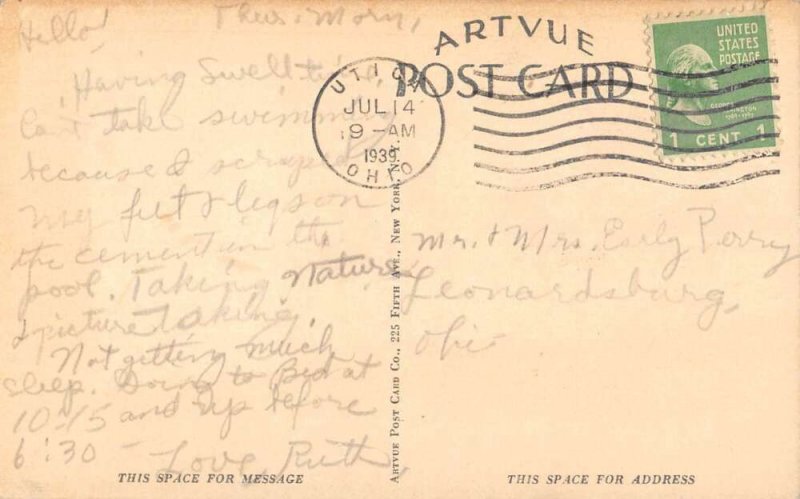 Thurs. Morn,
Hello!
Having Swell time.
Can't take swimming
because I scraped
my feet & legs on
the cement in the
pool. Taking Nature
& picture taking.
Not getting much
sleep. Going to Bed at
10:15 and up before
6:30 —
Love, Ruth
THIS SPACE FOR MESSAGE
ARTVUE
POST CARD
UTICA
JUL 14
9 - AM
1939
OHIO
UNITED
STATES
POSTAGE
1 CENT 1
ARTVUE POST CARD CO., 225 FIFTH AVE., NEW YORK, N.Y.
Mr. & Mrs. Early Perry
Leonardsburg,
Ohio
THIS SPACE FOR ADDRESS